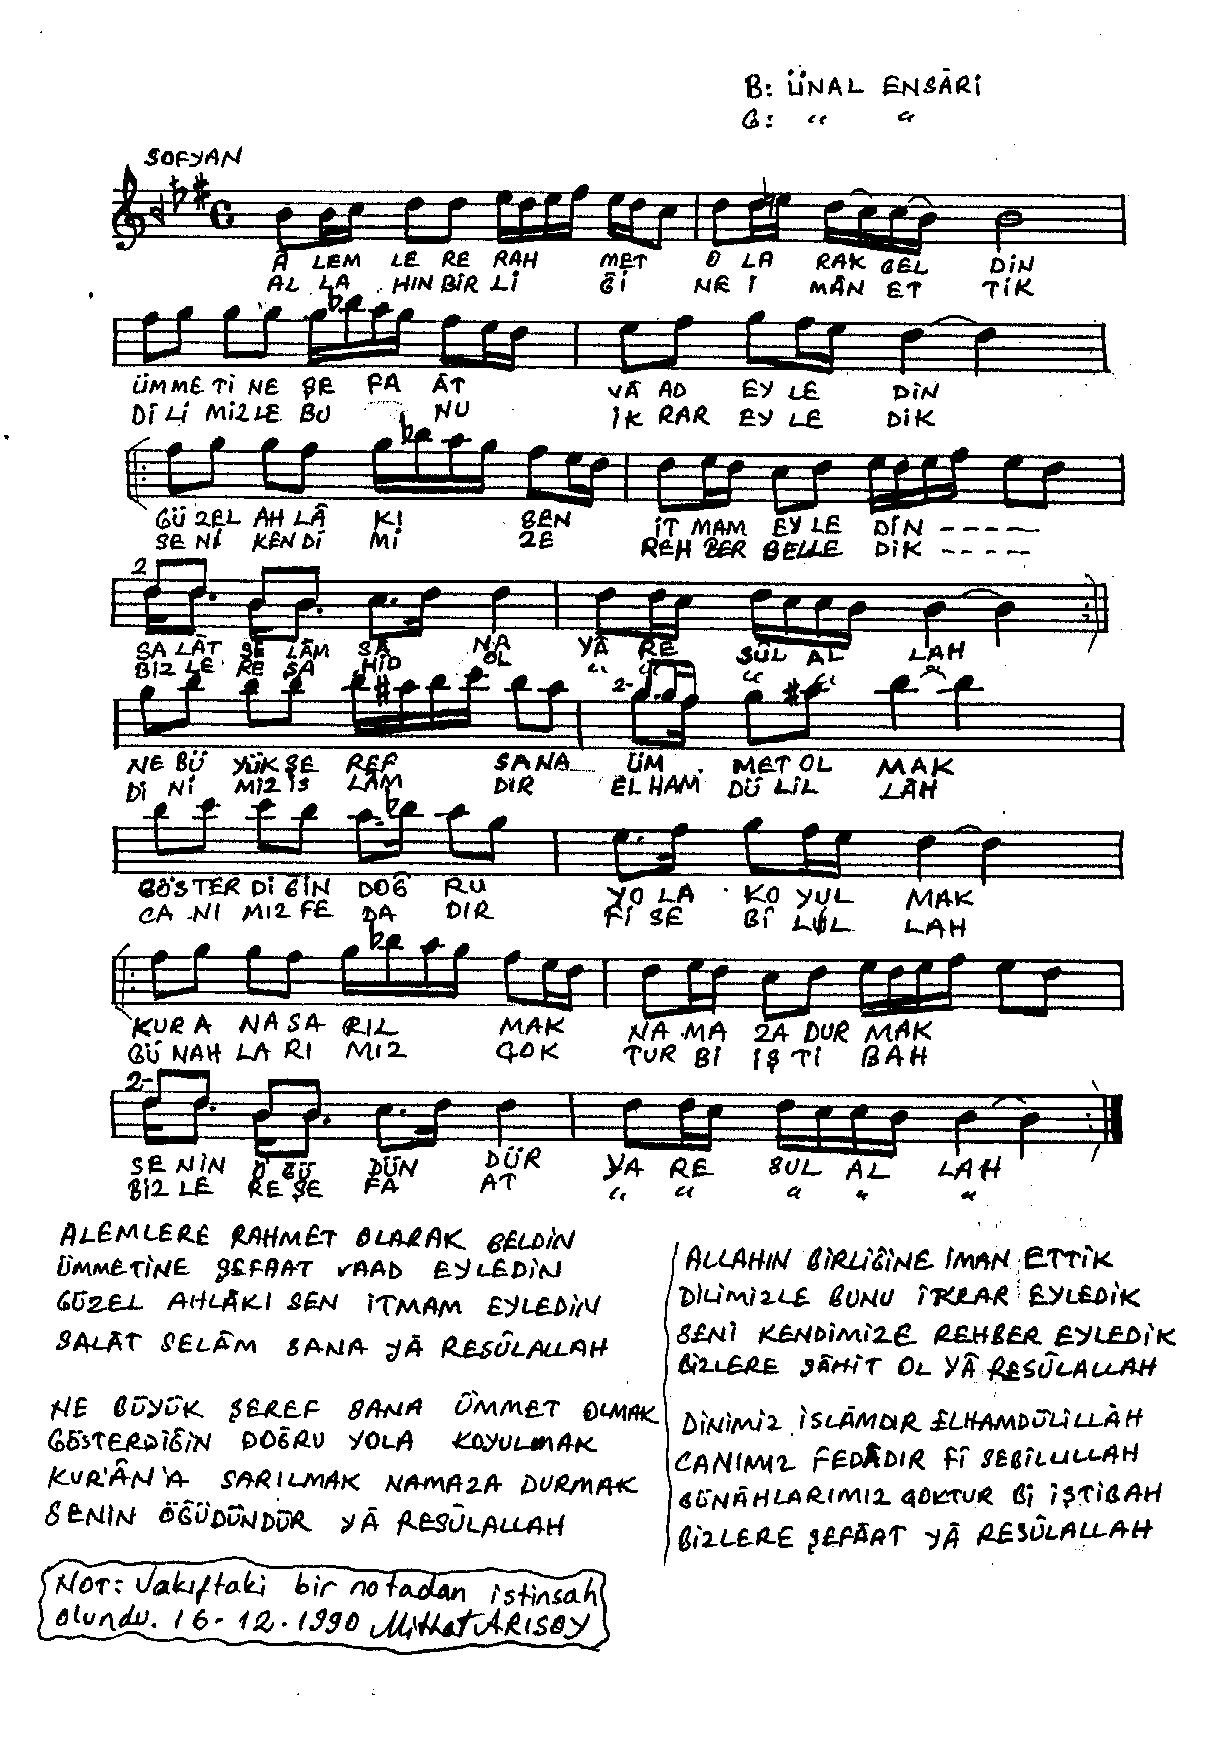 B: ÜNAL ENSÂRİ
G: “ “
SOFYAN
A LEM LE RE RAH MET O LA RAK GEL DİN
AL LA HIN BİR Lİ Ğİ NE İ MÂN ET TİK
ÜMME Tİ NE ŞE FA ÂT VÂ AD EY LE DİN
Dİ Lİ MİZ LE BU NU İK RAR EY LE DİK
GÜ ZEL AH LÂ KI SEN İT MAM EY LE DİN -----
SE Nİ KEN Dİ Mİ ZE REH BER BELLE DİK ----
2
SA LÂT SE LÂM SA NA YÂ RE SÛL AL LAH
BİZ LE RE ŞA HİD OL “ “ “ “ “
2-
NE BÜ YÜK ŞE REF SANA ÜM MET OL MAK
Dİ Nİ MİZ İS LÂM DIR EL HAM DÜ LİL LÂH
GÖS TER Dİ ĞİN DOĞ RU YO LA KO YUL MAK
CA NI MIZ FE DA DIR Fİ SE Bİ LÜL LAH
KUR A NA SA RIL MAK NA MA ZA DUR MAK
GÜ NAH LA RI MIZ ÇOK TUR Bİ İŞ Tİ BAH
2-
SE NİN Ö ĞÜ DÜN DÜR YA RE SUL AL LAH
BİZ LE RE ŞE FA AT “ “ “ “ “
ALEMLERE RAHMET OLARAK GELDİN
ÜMMETİNE ŞEFAAT VAAD EYLEDİN
GÜZEL AHLÂKI SEN İTMAM EYLEDİN
SALÂT SELÂM SANA YÂ RESÛLALLAH
NE BÜYÜK ŞEREF SANA ÜMMET OLMAK
GÖSTERDİĞİN DOĞRU YOLA KOYULMAK
KUR'ÂN'A SARILMAK NAMAZA DURMAK
SENİN ÖĞÜDÜNDÜR YÂ RESÛLALLAH
ALLAHIN BİRLİĞİNE İMAN ETTİK
DİLİMİZLE BUNU İKRAR EYLEDİK
SENİ KENDİMİZE REHBER EYLEDİK
BİZLERE ŞÂHİT OL YÂ RESÛLALLAH
DİNİMİZ İSLÂMDIR ELHAMDÜLİLLÂH
CANIMIZ FEDÂDIR Fİ SEBİLULLAH
GÜNÂHLARIMIZ ÇOKTUR Bİ İŞTİBAH
BİZLERE ŞEFÂAT YÂ RESÛLALLAH
NOT: Vakıftaki bir notadan istinsah
olundu. 16-12-1990 Mithat ARISOY